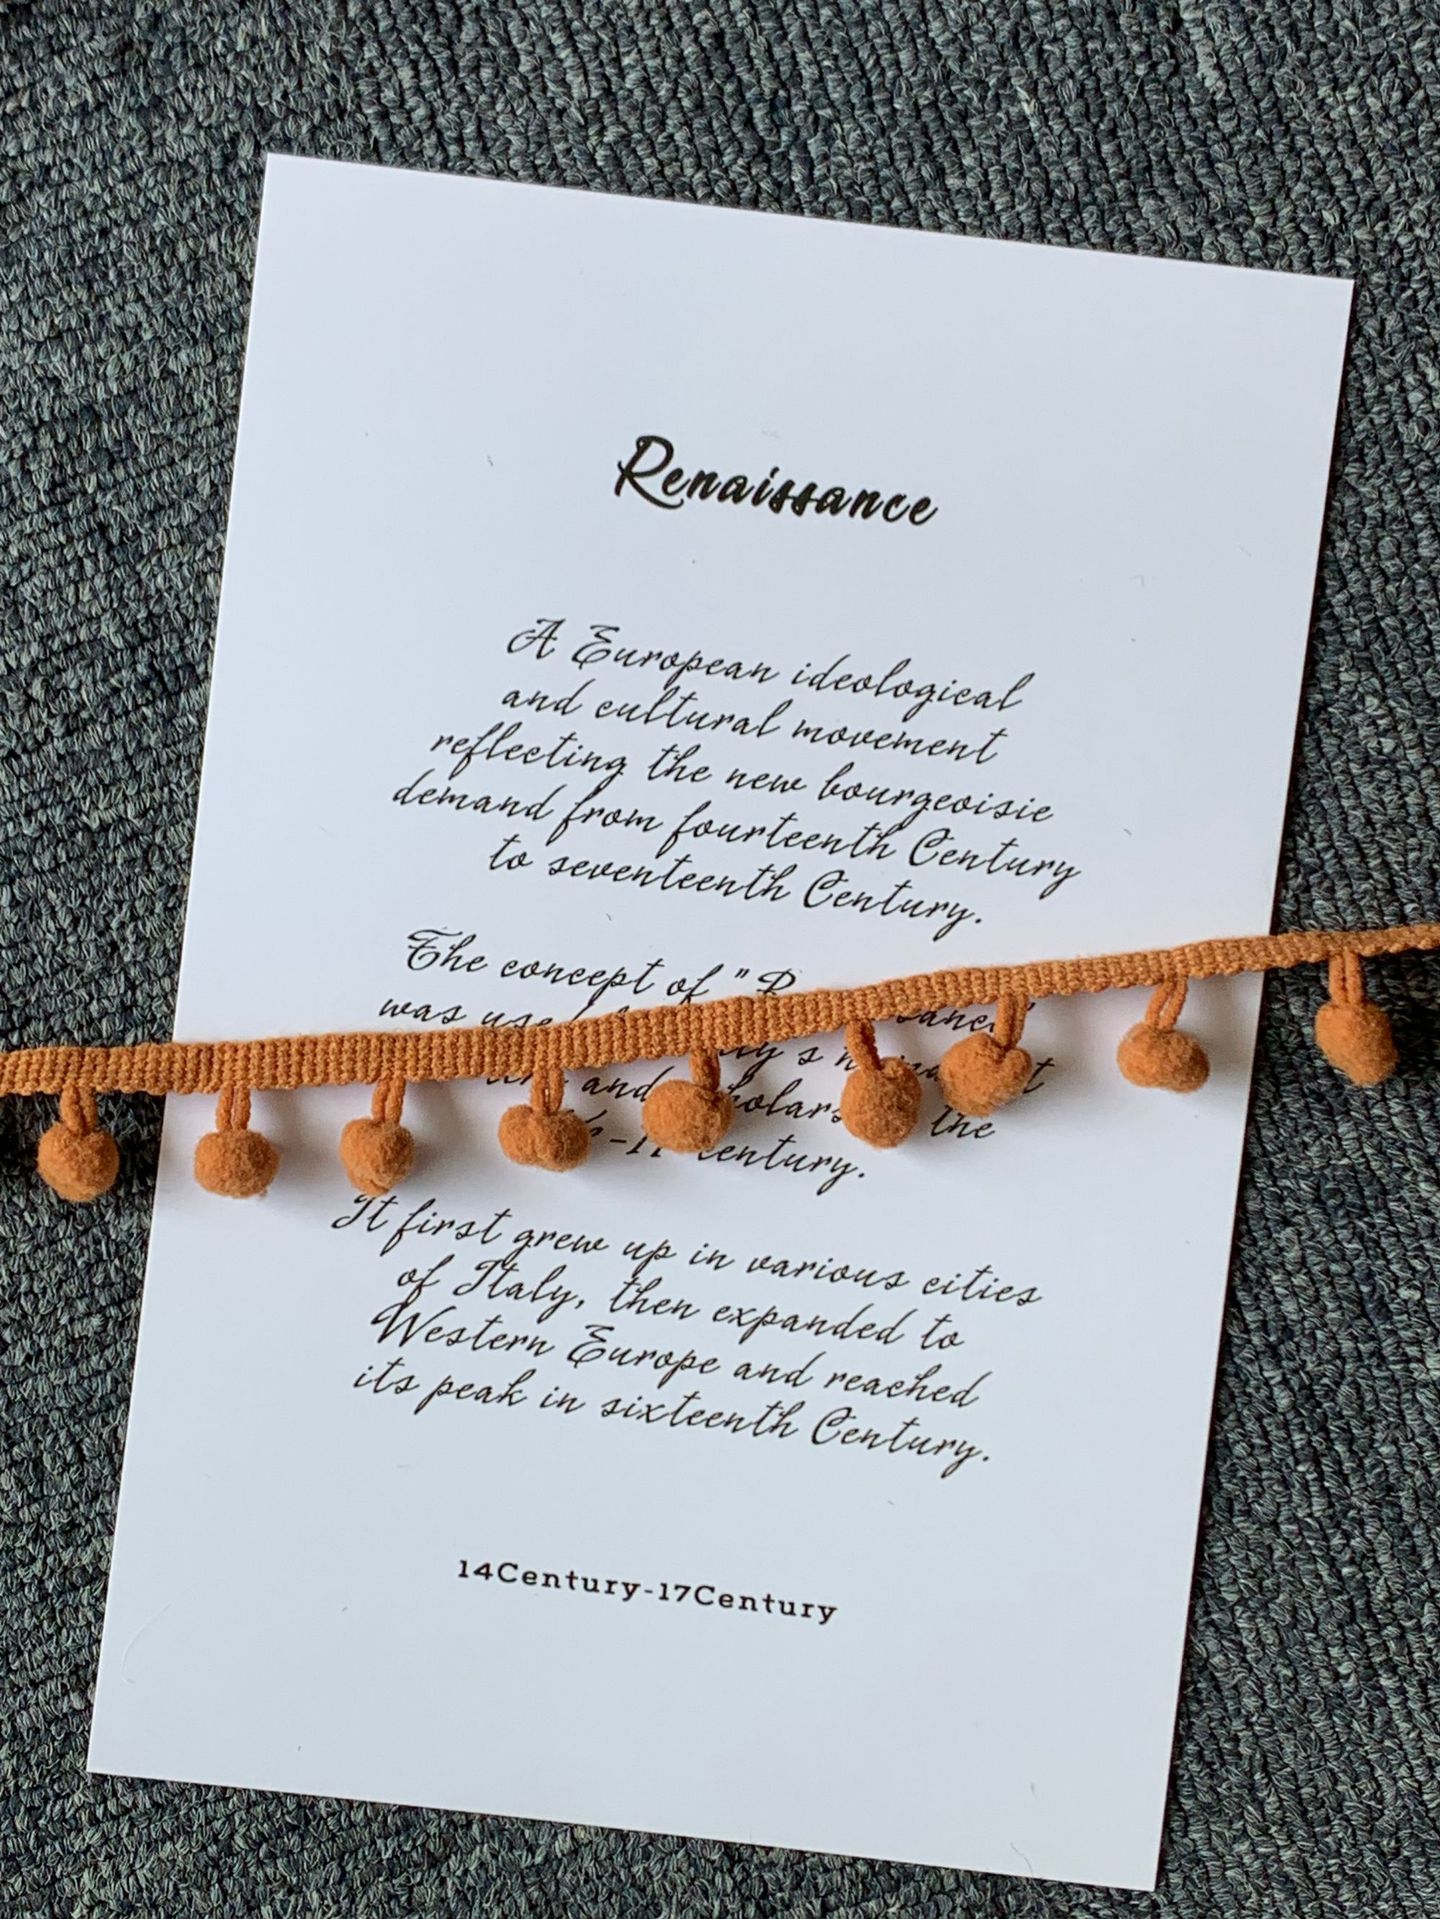 Renaissance
A European ideological
and cultural movement
reflecting the new bourgeoisie
demand from fourteenth Century
to seventeenth Century.
The concept of "
was
and the
Century.
It first grew up in various cities
of Italy, then expanded to
Western Europe and reached
its peak in sixteenth Century.
14Century-17Century